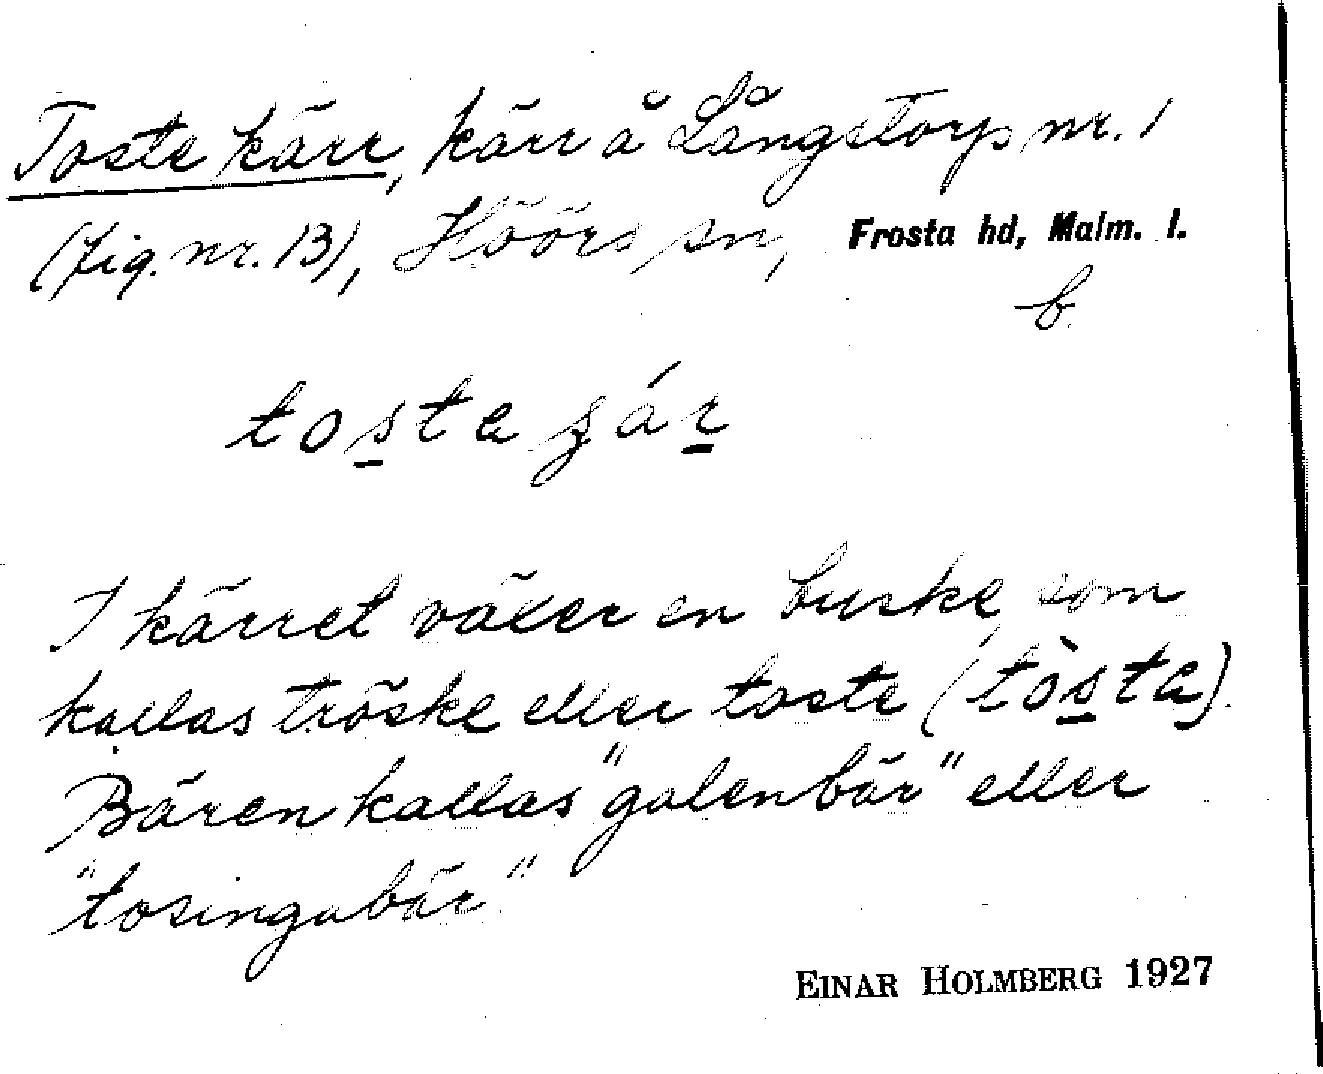 Toste kärr, kärr å Långstorp nr. 1
(fig. nr. 13), Höörs sn, Frosta hd, Malm. l.
b.
tosta ʂár
I kärret växer en buske, som
kallas tröske eller toste (tòsta).
Bären kallas "galenbär" eller
"tosingabär"
EINAR HOLMBERG 1927